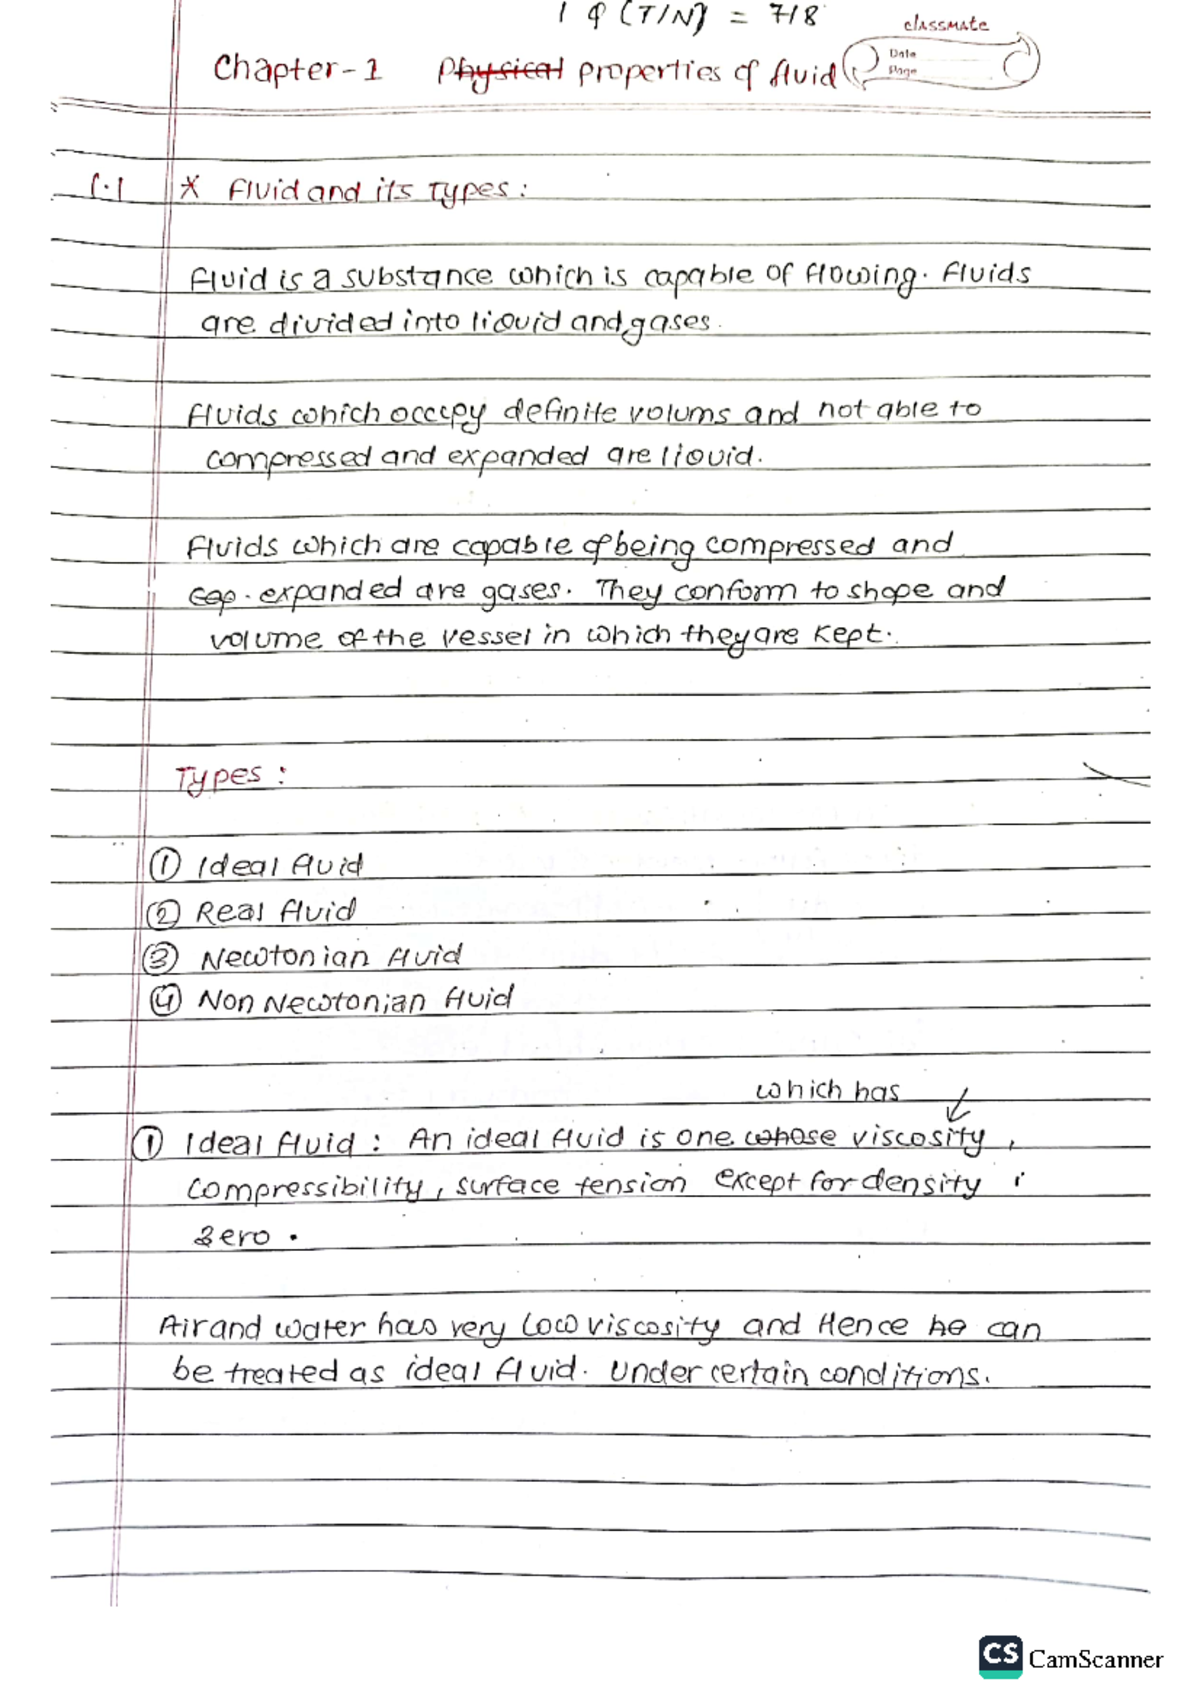 1 Q (T/N) = 7/8
classmate
Date
Page
Chapter-1 Physical properties of fluid
1.1 * Fluid and its Types:
Fluid is a substance which is capable of flowing. Fluids
are divided into liquid and gases.
Fluids which occcpy definite volums and not able to
compressed and expanded are liquid.
Fluids which are capable of being compressed and
cap. expanded are gases. They conform to shape and
volume of the vessel in which they are kept.
Types:
① Ideal fluid
② Real fluid
③ Newtonian fluid
④ Non Newtonian fluid
which has
① Ideal fluid: An ideal fluid is one whose viscosity,
compressibility, surface tension except for density i
zero.
Air and water has very low viscosity and Hence he can
be treated as ideal fluid. Under certain conditions.
CS CamScanner